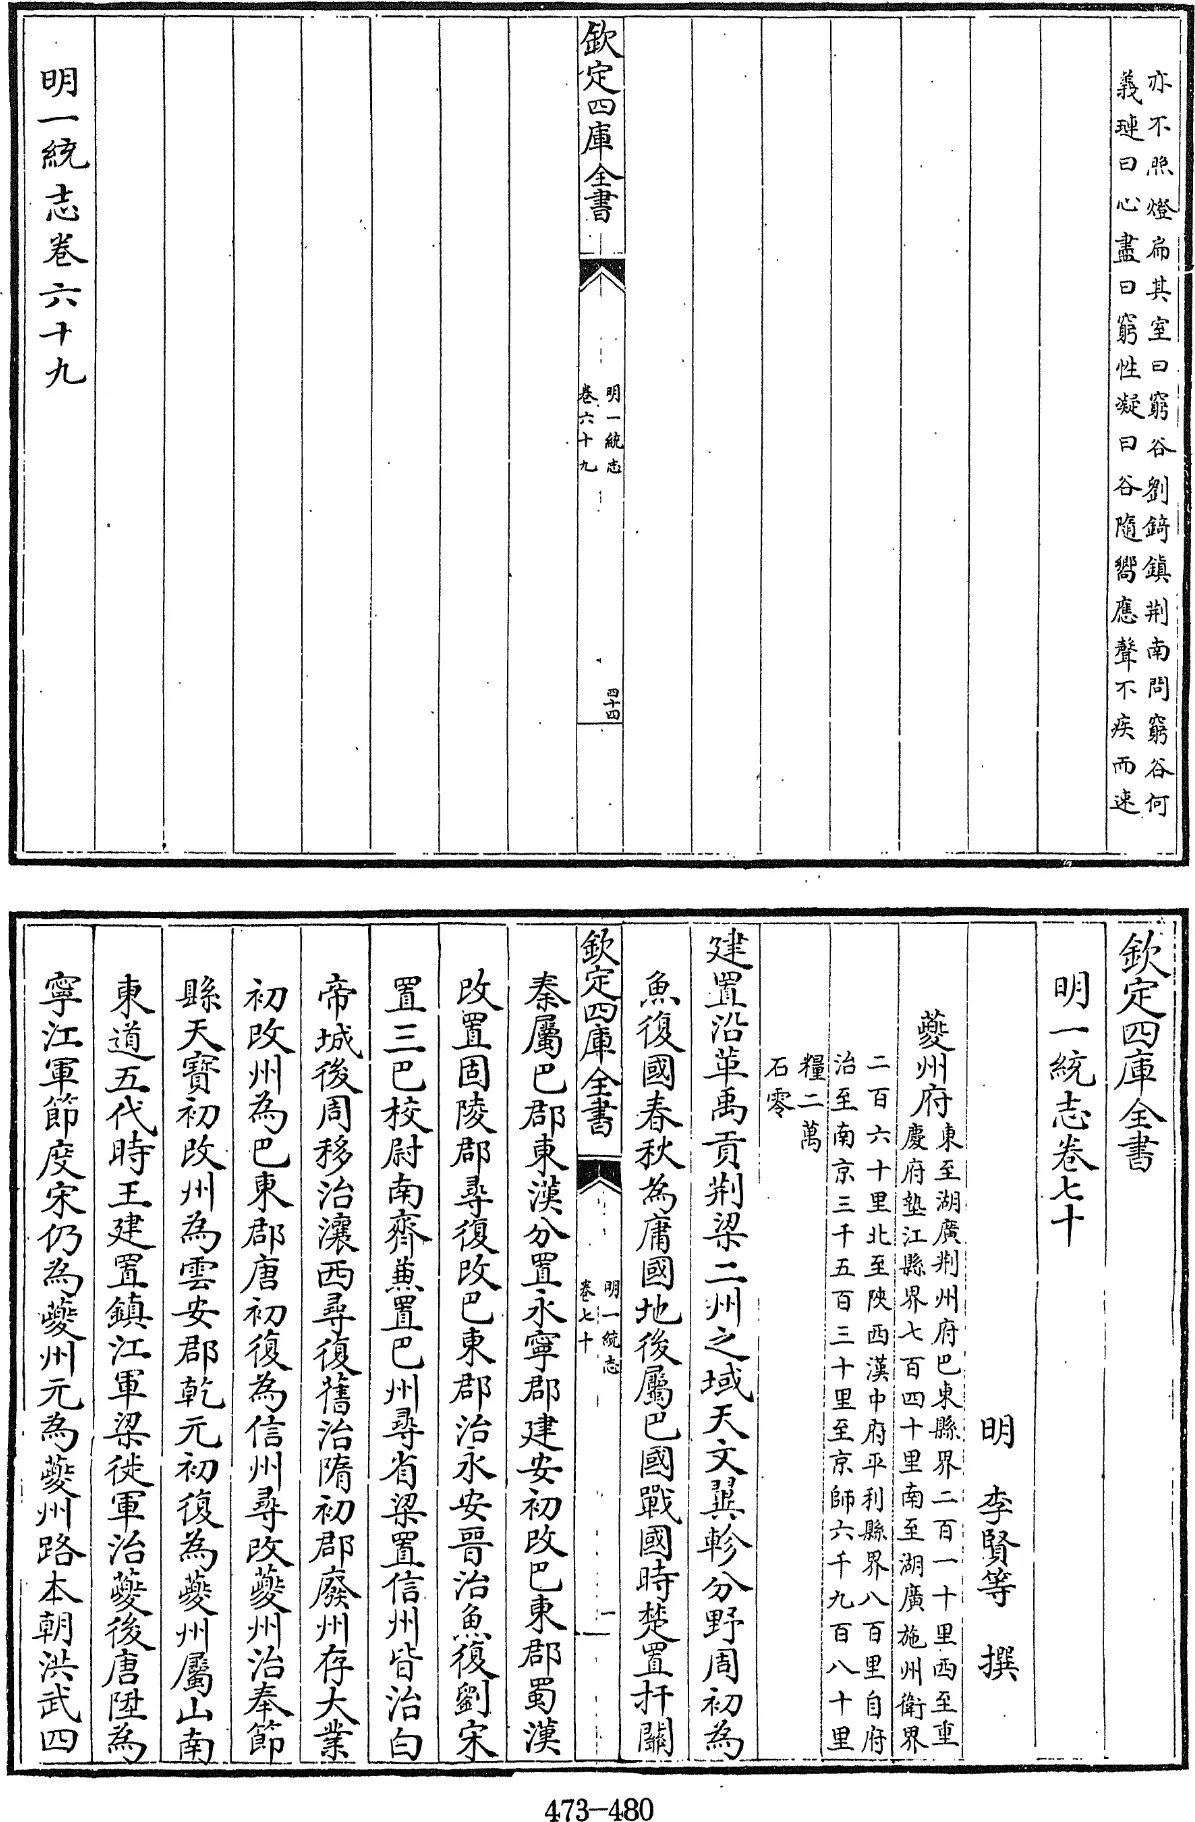 亦不照燈扁其室曰窮谷劉錡鎮荆南問窮谷何
義璉曰心盡曰窮性凝曰谷隨嚮應聲不疾而速
欽定四庫全書
明一統志
卷六十九
四十四
明一統志卷六十九
欽定四庫全書
明一統志卷七十
明　李賢等　撰
夔州府
東至湖廣荆州府巴東縣界二百一十里西至重
慶府墊江縣界七百四十里南至湖廣施州衛界
二百六十里北至陜西漢中府平利縣界八百里自府
治至南京三千五百三十里至京師六千九百八十里
糧二萬
石零
建置沿革禹貢荆梁二州之域天文翼軫分野周初為
魚復國春秋為庸國地後屬巴國戰國時楚置扞關
欽定四庫全書
明一統志
卷七十
一
秦屬巴郡東漢分置永寧郡建安初改巴東郡蜀漢
改置固陵郡尋復改巴東郡治永安晉治魚復劉宋
置三巴校尉南齊兼置巴州尋省梁置信州皆治白
帝城後周移治瀼西尋復舊治隋初郡廢州存大業
初改州為巴東郡唐初復為信州尋改夔州治奉節
縣天寶初改州為雲安郡乾元初復為夔州屬山南
東道五代時王建置鎮江軍梁徙軍治夔後唐陞為
寧江軍節度宋仍為夔州元為夔州路本朝洪武四
473-480